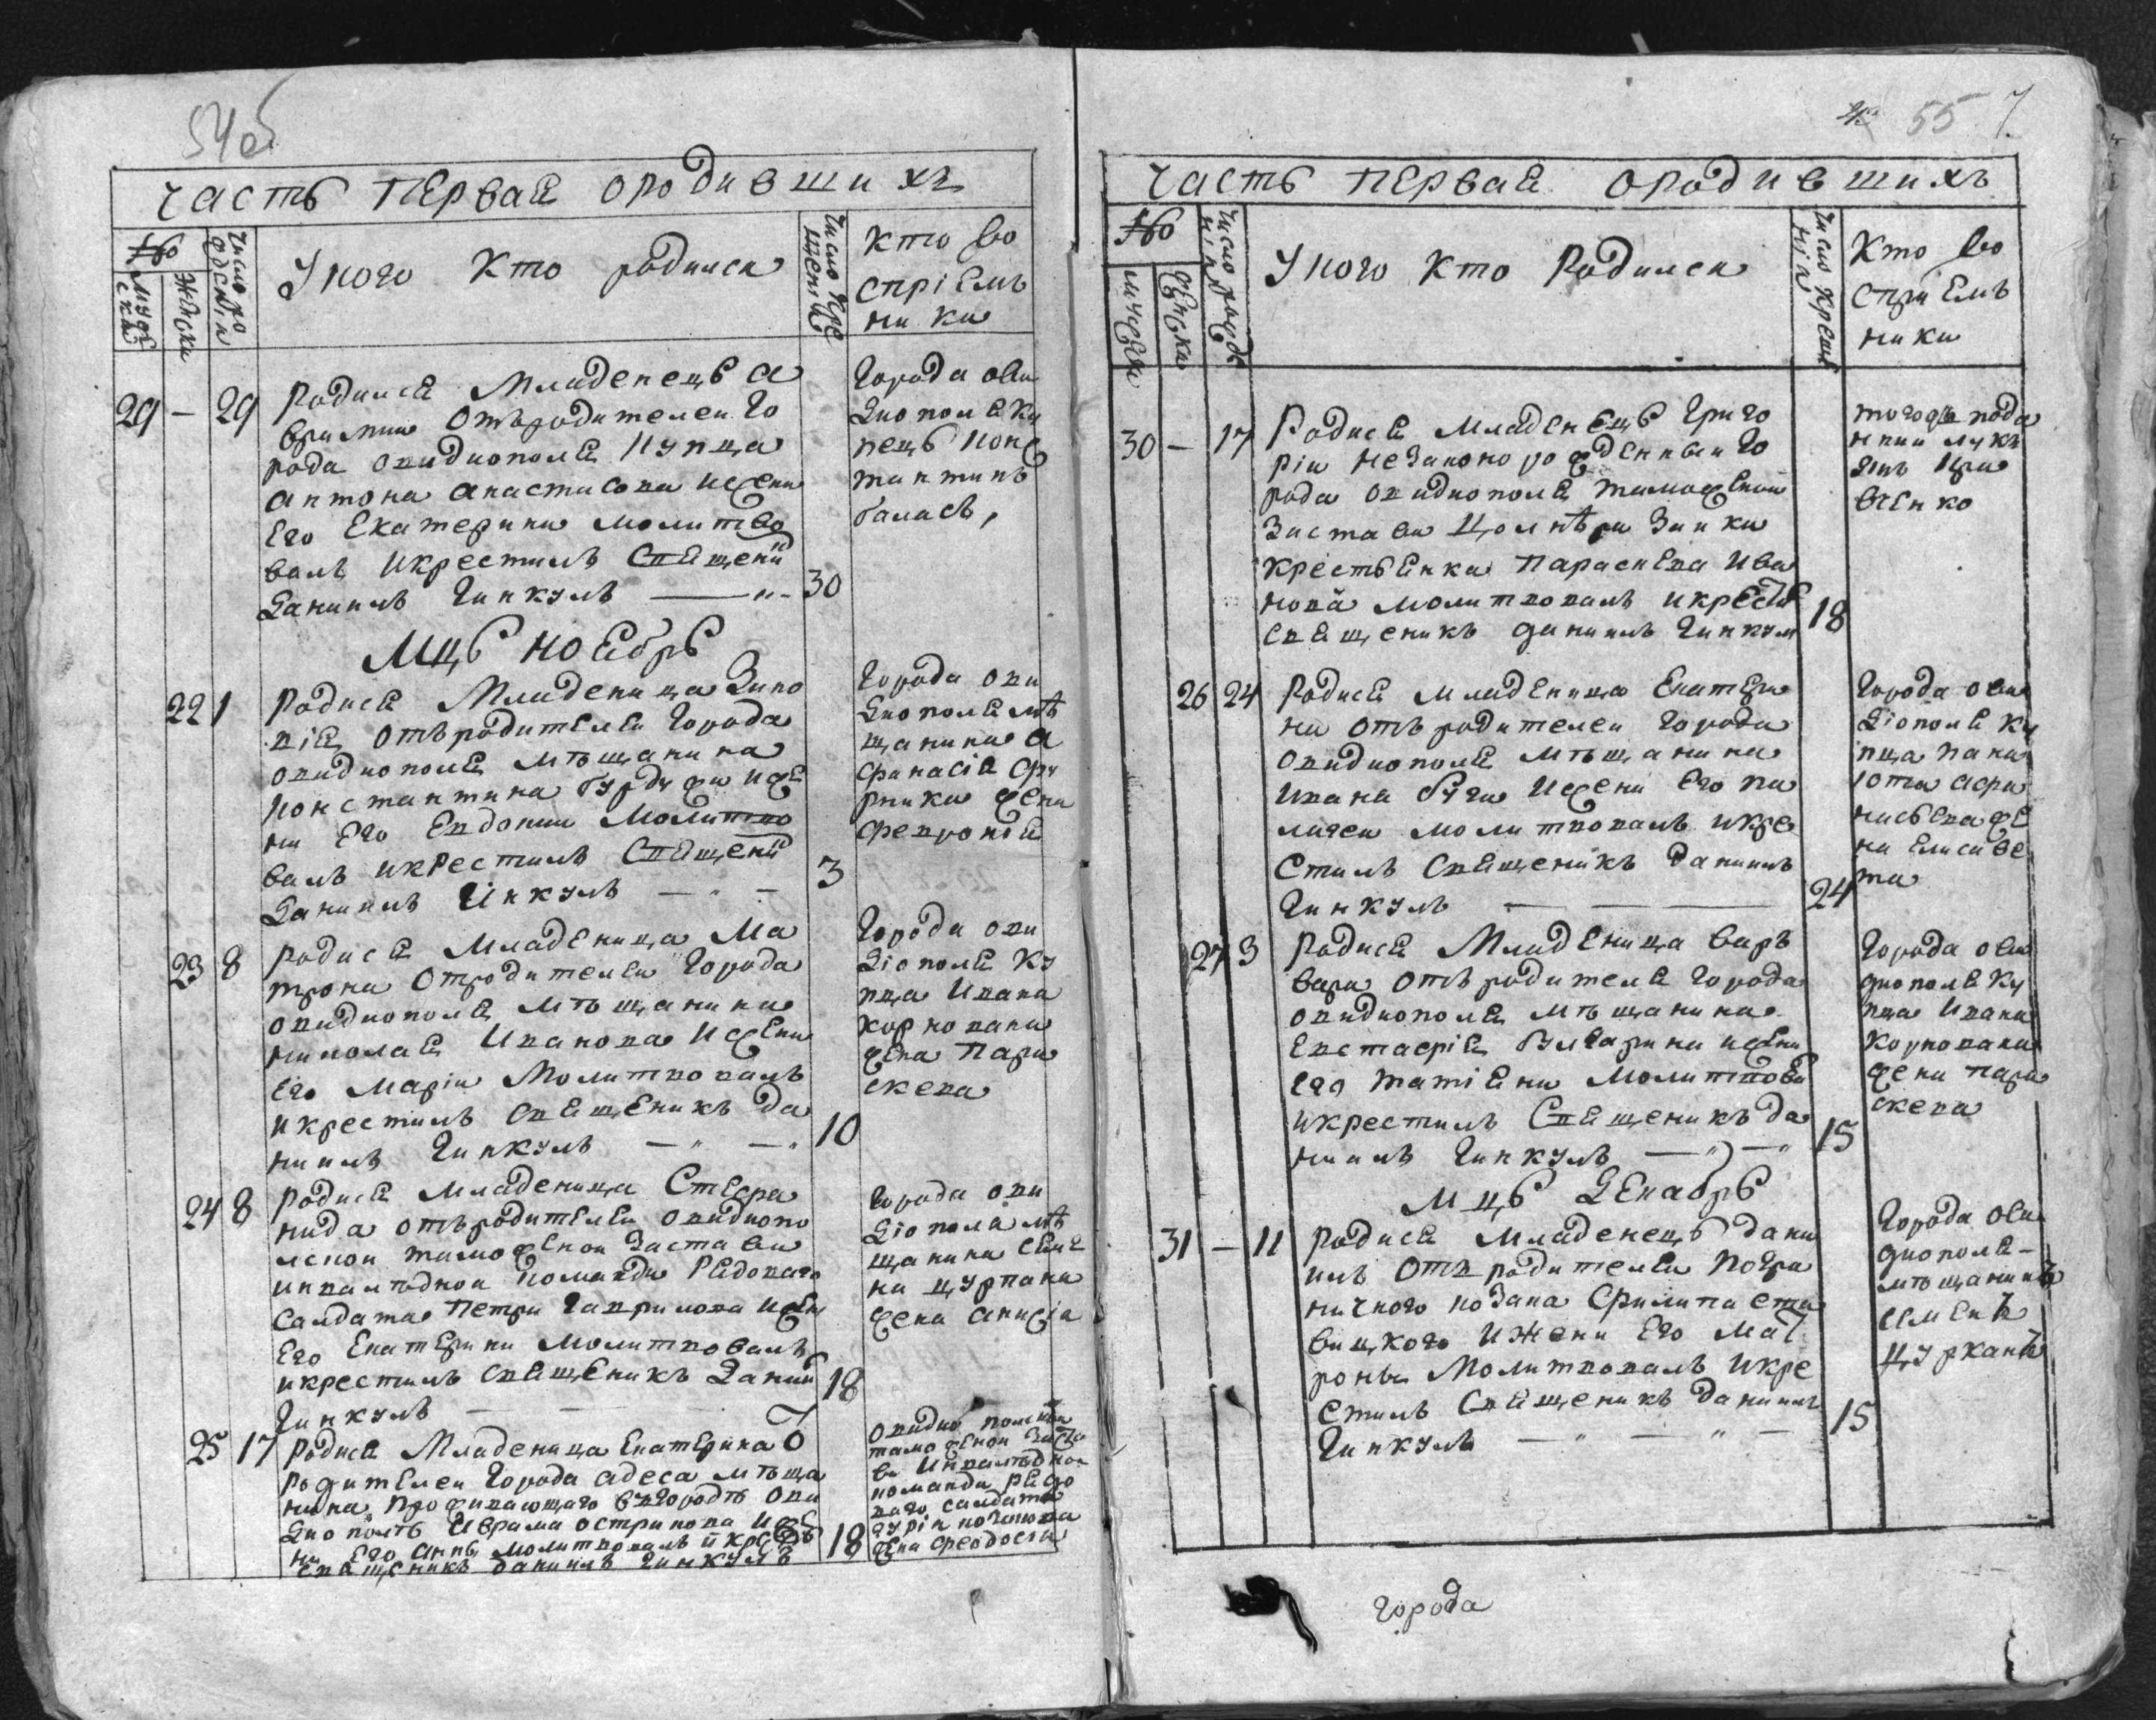 54об
часть первая ородившихъ
№
мужеска
женска
Число рождения
У кого кто родился
число крещения
кто во
спрiемъ
ники
29 — 29 Родился Младенецъ А
врилиш отъ родителеи го
рода овидиополя купца
антона анастасова и жени
его Екатерини молитво
валъ и крестилъ священи
Даниилъ Гинкулъ — 30
города ови
диополя ку
пецъ конс
тантинъ
баласъ,
Мцъ ноябръ
22 1 Родися Младеница Зино
вiя отъ родителеи города
овидиополя мѣщанина
константина бурдужи и же
ни его Евдокии молитво
валъ и крестилъ священи
Даниилъ Гинкулъ — 3
города ови
диополя мѣ
щанина а
фанасiя фу
рники жена
февронiя
23 8 родися младеница Ма
трона от родителеи города
овидиополя мѣщанина
николая Иванова и жени
его Марiи молитвовалъ
и крестилъ священикъ да
ниилъ Гинкулъ — 10
города ови
дiополя ку
пца Ивана
корнована
жена пара
скева
24 8 родися младеница Стефа
нида отъ родителеи овидиопо
лскои таможенои заставы
инвалѣднои команди рядоваго
салдата петра гаврилова и жени
его Екатерини молитвовалъ
и крестилъ священикъ Дании
Гинкулъ 18
города ови
дiополя мѣ
щанина семе
на цуркана
жена анисiя
25 17 родися Младеница Екатерина о
родителеи города адеса мѣща
нина проживающаго в городѣ ови
диополѣ Аврама острикова и же
ни его анны молитвовалъ и крести
священикъ даниилъ гинкулъ 18
овидиополской
таможенои заста
ви инвалѣднои
команди рядо
ваго салдата
жена феодосия
55
часть первая ородившихъ
№
мужеска
женска
Число рожде
нiя
У кого кто Родился
Число Креще
нiя
Кто во
сприемъ
ники
30 — 17 Родися младенецъ Григо
рiи незаконорожденныи го
рода овидиополя таможенои
застави
крестьянка параскева ива
нова молитвовалъ и крести
священикъ даниилъ Гинкул 18
того же
26 24 Родися младеница Екатери
на отъ родителеи города
овидиополя мѣщанина
ивана бучи и жени его пе
лагеи молитвовалъ и кре
стилъ священикъ даниилъ
Гинкулъ — 24
города ови
дiополя ку
пца пана
iота афа
насьева же
на елисаве
та
27 3 родися Младеница варъ
вара отъ родителя города
овидиополя мѣщанина
евстафiя булгарина и жени
его татiяни молитвова
и крестилъ священикъ да
ниилъ Гинкулъ — 15
города ови
диополя ку
пца ивана
корнована
жена пара
скева
Мцъ Декабръ
31 — 11 родися младенецъ дани
илъ отъ родителеи погра
ничного козака филипа ста
вицкого и жени его мат
роны молитвовалъ и кре
стилъ священикъ даниилъ
Гинкулъ — 15
города ови
диополя
мѣщанинъ
семенъ
цурканъ
города